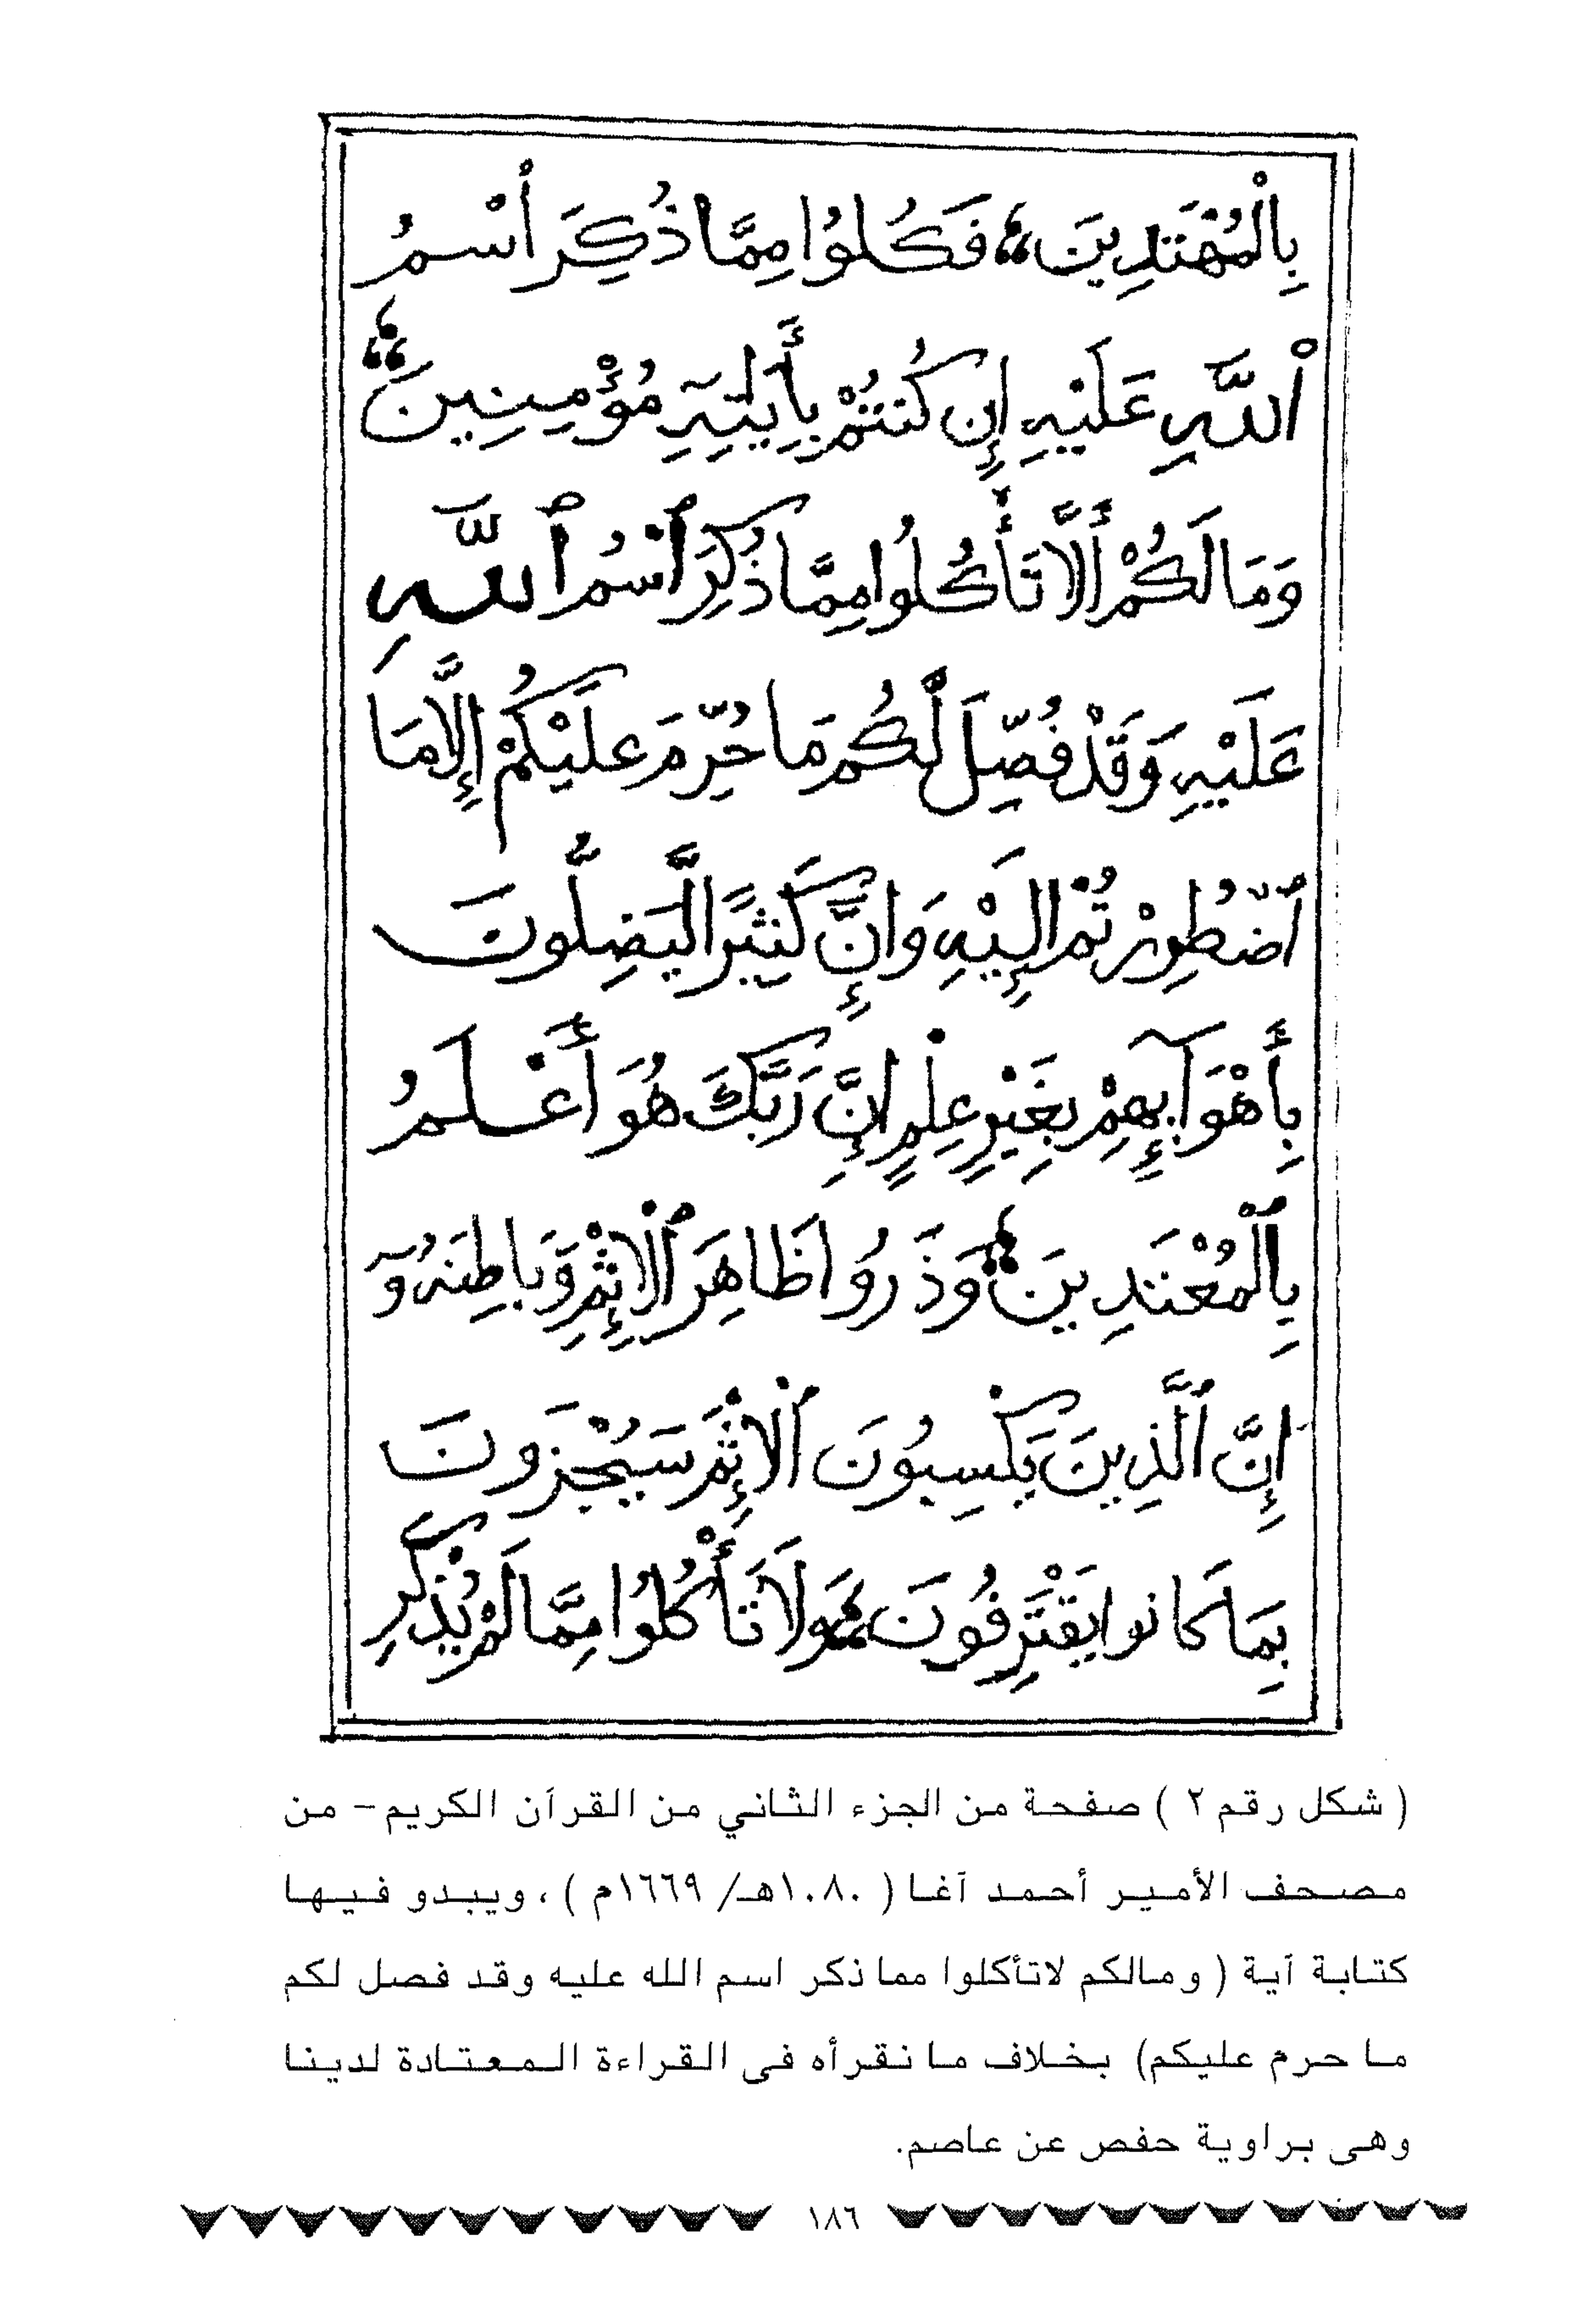 بِالْمُهْتَدِينَ فَكُلُوا مِمَّا ذُكِرَ ٱسْمُ
ٱللَّهِ عَلَيْهِ إِن كُنتُمْ بِأَيَٰتِهِ مُؤْمِنِينَ
وَمَا لَكُمْ أَلَّا تَأْكُلُوا مِمَّا ذُكِرَ ٱسْمُ ٱللَّهِ
عَلَيْهِ وَقَدْ فُصِّلَ لَكُم مَا حُرِّمَ عَلَيْكُمْ إِلَّا مَا
ٱضْطُرِرْتُمْ إِلَيْهِ وَإِنَّ كَثِيرًا لَّيَضِلُّونَ
بِأَهْوَآئِهِمْ بِغَيْرِ عِلْمٍ إِنَّ رَبَّكَ هُوَ أَعْلَمُ
بِٱلْمُعْتَدِينَ وَذَرُوا ظَاهِرَ ٱلْإِثْمِ وَبَاطِنَهُۥٓ
إِنَّ ٱلَّذِينَ يَكْسِبُونَ ٱلْإِثْمَ سَيُجْزَوْنَ
بِمَا كَانُوا يَقْتَرِفُونَ وَلَا تَأْكُلُوا مِمَّا لَمْ يُذْكَرِ
( شكل رقم ٢ ) صفحة من الجزء الثاني من القرآن الكريم - من
مصحف الأمير أحمد آغا ( ١٠٨٠هـ/ ١٦٦٩م ) ، ويبدو فيها
كتابة آية ( ومالكم لاتأكلوا مما ذكر اسم الله عليه وقد فصل لكم
ما حرم عليكم) بخلاف ما نقرأه فى القراءة المعتادة لدينا
وهى براوية حفص عن عاصم.
١٨٦